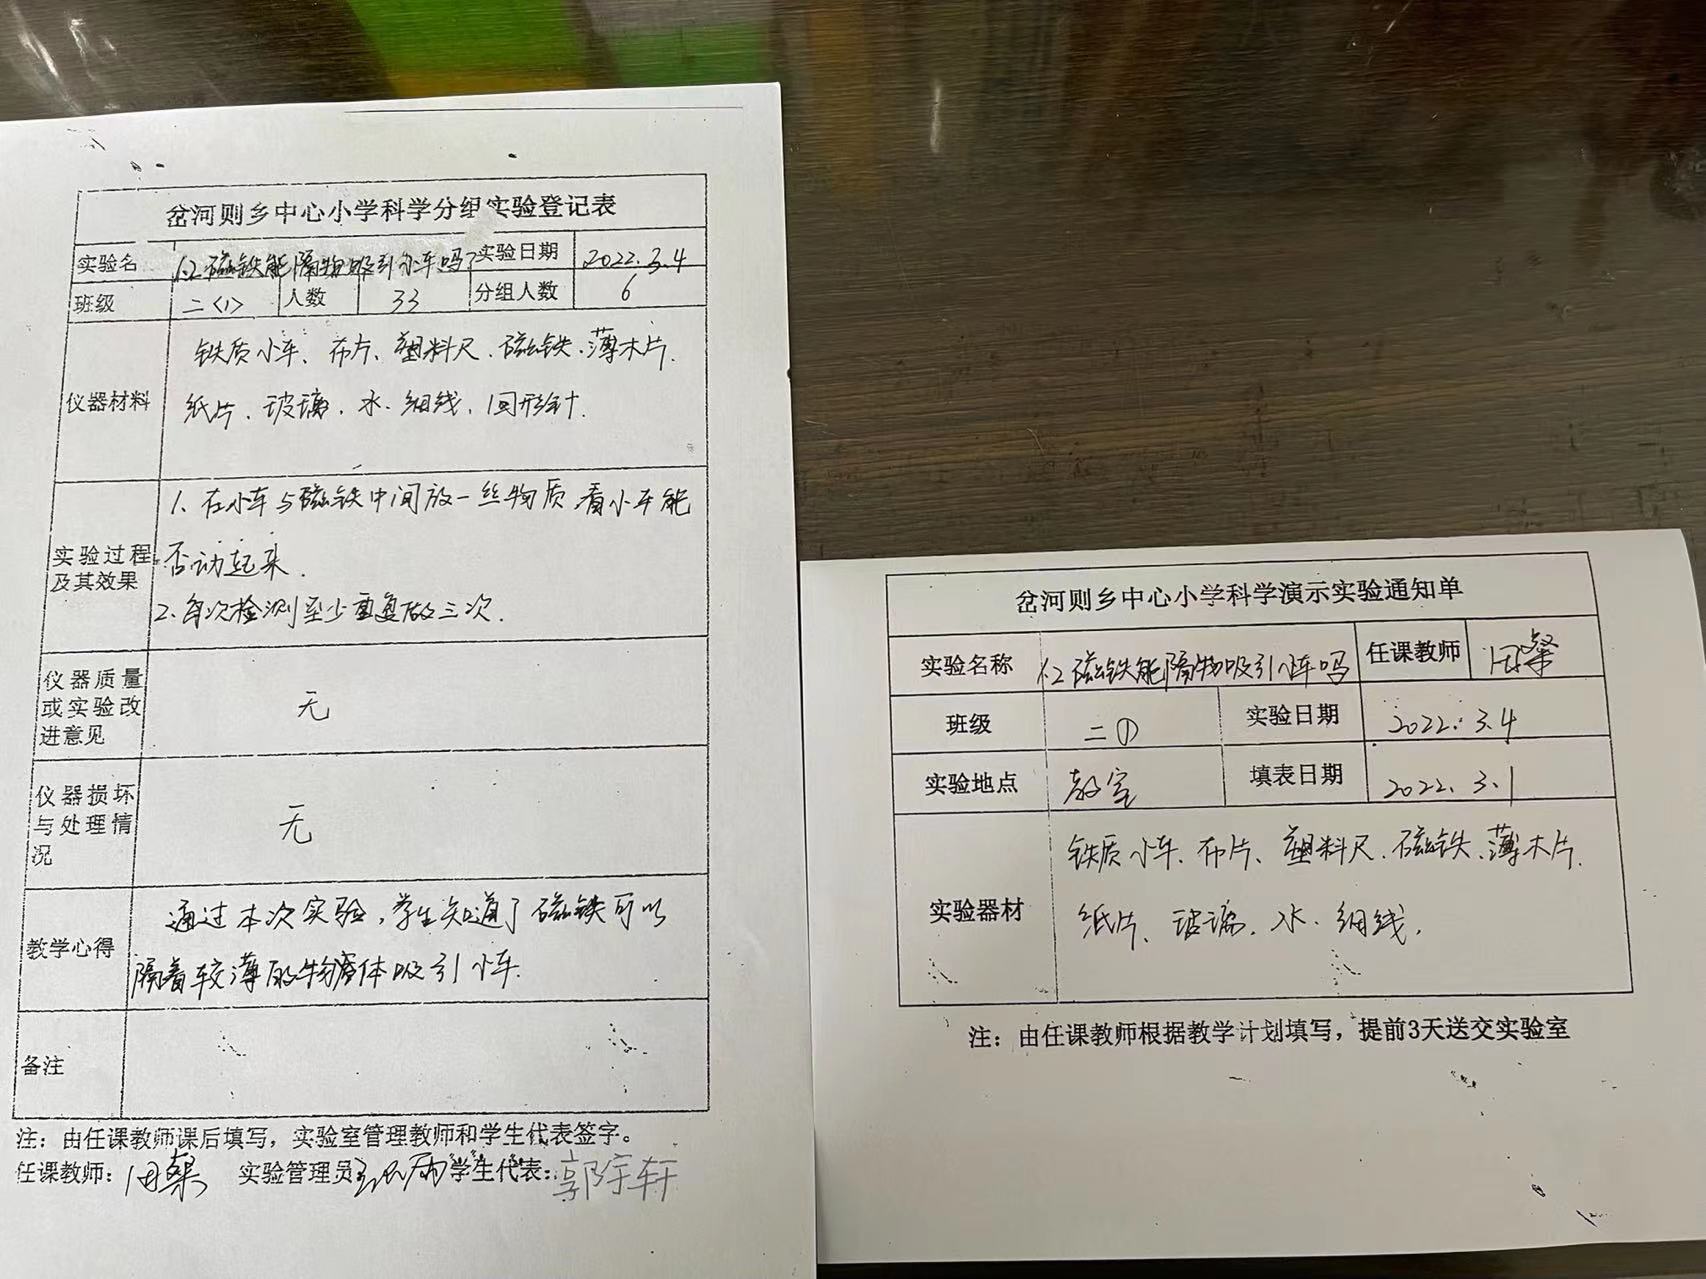 岔河则乡中心小学科学分组实验登记表
实验名 1.2 磁铁能隔物吸引小车吗? 实验日期 2022.3.4
班级 二<1> 人数 33 分组人数 6
仪器材料
铁质小车、布片、塑料尺、磁铁、薄木片、
纸片、玻璃、水、细线、回形针.
实验过程
及其效果
1、在小车与磁铁中间放一丝物质,看小车能
否动起来.
2.每次检测至少重复做三次.
仪器质量
或实验改
进意见
无
仪器损坏
与处理情
况
无
教学心得
通过本次实验,学生知道了磁铁可以
隔着较薄的物体吸引小车.
备注
注:由任课教师课后填写,实验室管理教师和学生代表签字。
任课教师: 实验管理员 学生代表: 郭宇轩
岔河则乡中心小学科学演示实验通知单
实验名称 1.2 磁铁能隔物吸引小车吗 任课教师
班级 二① 实验日期 2022.3.4
实验地点 教室 填表日期 2022.3.1
实验器材
铁质小车、布片、塑料尺、磁铁、薄木片、
纸片、玻璃、水、细线.
注:由任课教师根据教学计划填写,提前3天送交实验室